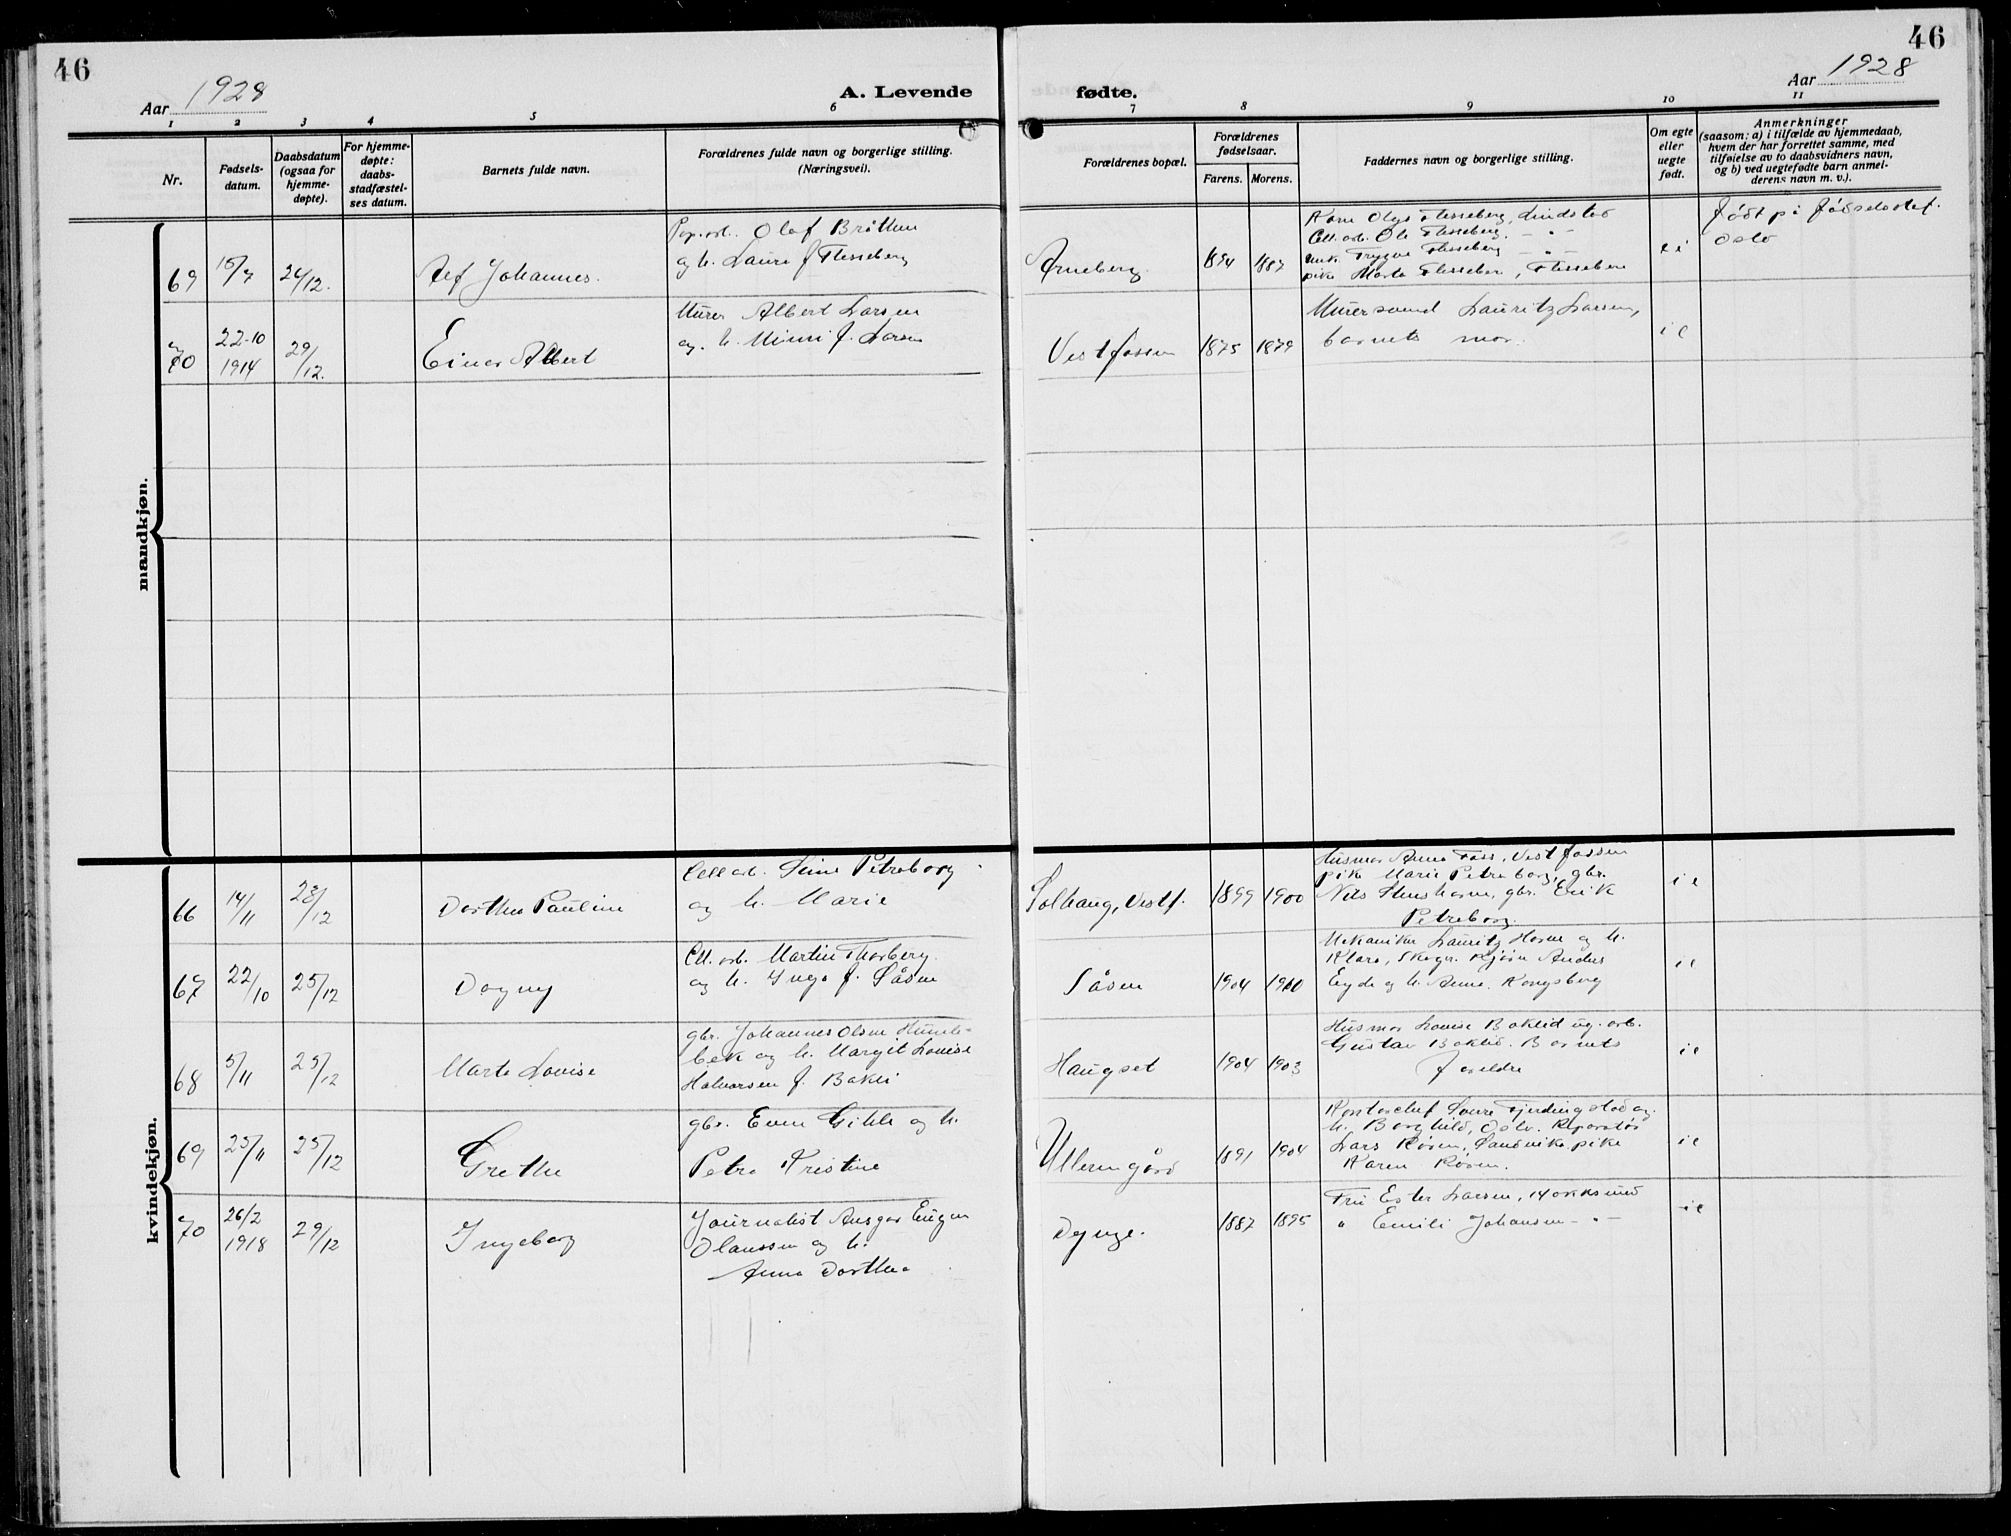 46
Aar 1928
A. Levende
1 2 3 4 5 6
Nr.
Fødsels-
datum.
Daabsdatum
(ogsaa for
hjemme-
døpte).
For hjemme-
døpte:
daabs-
stadfæstel-
ses datum.
Barnets fulde navn.
Forældrenes fulde navn og borgerlige stilling.
(Næringsvei).
46
Aar 1928
fødte.
7 8 9 10 11
Forældrenes bopæl.
Forældrenes
fødselsaar.
Farens. Morens.
Faddernes navn og borgerlige stilling.
Om egte
eller
uegte
født.
Anmerkninger
(saasom: a) i tilfælde av hjemmedaab,
hvem der har forrettet samme, med
tilføielse av to daabsvidners navn,
og b) ved uegtefødte barn anmel-
derens navn m. v.).
mandkjøn.
69 15/7 26/12. Johannes.
Pap.arb. Olaf Bråthen
og h. Laura f Flesseberg
Arneberg. 1894 1887
Kone Olga Flesseberg, Lindstad
Cell. arb. Ole Flesseberg. - " -
unk. Trygve Flesseberg - " -
pike Marta Flesseberg, Flesseberg
Født på Fødselsstif.
Oslo
70 22-10
1914 29/12. Einar Albert
Murer Albert Larsen
og h. Minni f. Larsen
Vestfossen 1875 1879
Murersvend Lauritz Larsen,
barnets mor.
kvindekjøn.
66 14/11 23/12 Dorthea Pauline
Cell arb. Petreborg
og h. Marie
Solhaug, Vestf. 1899 1900
Husmor Anna Foss, Vestfossen
pike Marie Petreborg, gbr.
Nils Stenshorne, gbr. Erik
Petreborg.
67 22/10 25/12 Dagny
Cell. arb. Martin Thorberg
og h. Inga f. Såsen
Såsen 1904 1910
Mekaniker Lauritz Horne og h.
Klara, Skogr. Anders
Eyde og h. Anna. Kongsberg
68 5/11 25/12 Marte Lovise
gbr. Johannes Olsen Humle-
bek og h. Margit Lovise
Halvorsen f. Bakli
Haugset 1904 1903
Husmor Lovise Baklid ug. arb.
Gustav Baklid. Barnets
foreldre
69 25/11 25/12 Grethe
gbr. Even Gihle og h.
Petra Kristine
Ullerngård 1891 1904
Kontorchef Sverre Fjerdingstad og
h. Borghild, Oslo. Reparatør
Lars Røren, Sandvika pike
Karen Røren.
70 26/2
1918 29/12 Ingeborg
Journalist Ansgar Eugen
Olaussen og h.
Anna Dorthea
Dynge. 1887 1895
Fru Ester Larsen,
" Emili Johansen - " -